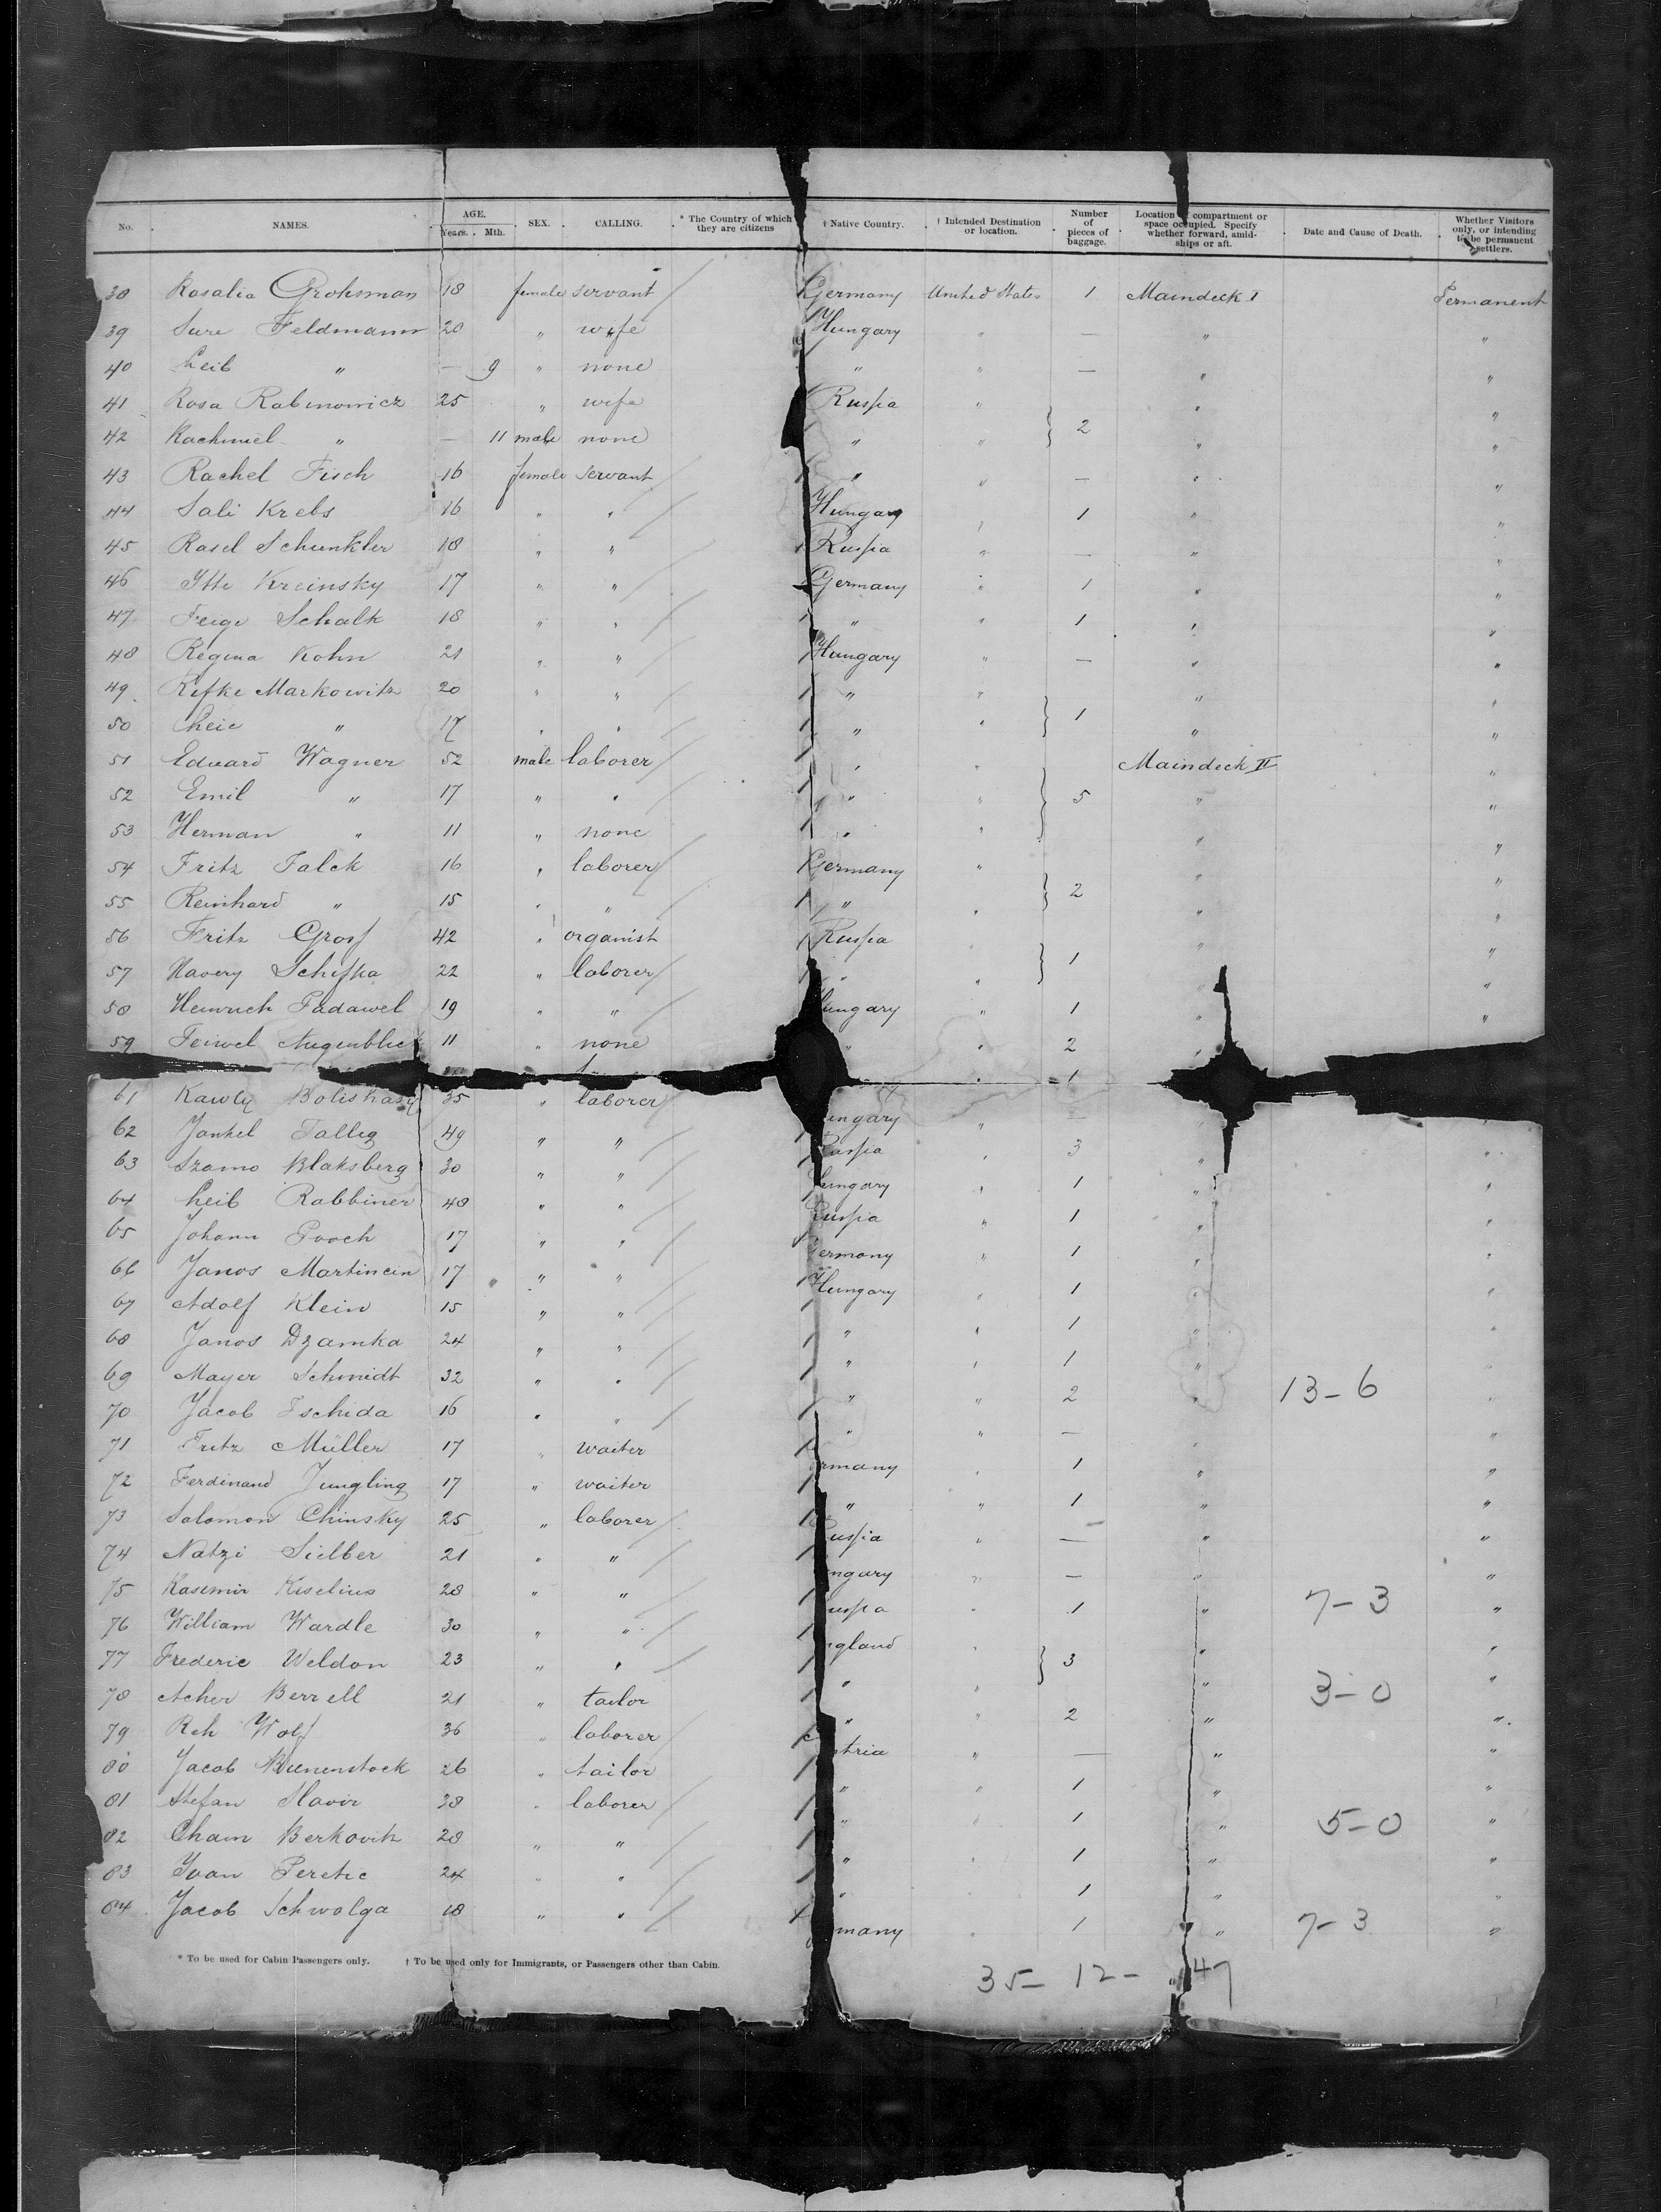 No. NAMES. AGE. Years. Mth. SEX. CALLING. * The Country of which they are citizens † Native Country. † Intended Destination or location. Number of pieces of baggage. Location of compartment or space occupied. Specify whether forward, amidships or aft. Date and Cause of Death. Whether Visitors only, or intending to be permanent settlers.
38 Rosalia Grohsman 18 female servant Germany United States 1 Maindeck I Permanent
39 Sure Feldmann 20 " wife Hungary " — " "
40 Leib " — 9 " none " " — " "
41 Rosa Rabinowicz 25 " wife Russia " " "
42 Rachmiel " — 11 male none " " 2 " "
43 Rachel Fisch 16 female servant " " — " "
44 Sali Krebs 16 " " Hungary " 1 " "
45 Rasel Schunkler 18 " " Russia " — " "
46 Itte Kreinsky 17 " " Germany " 1 " "
47 Feige Schalk 18 " " " " 1 " "
48 Regina Kohn 21 " " Hungary " — " "
49 Rifke Markowitz 20 " " " " " "
50 " 17 " " " " 1 " "
51 Eduard Wagner 52 male laborer " " Maindeck II "
52 Emil " 17 " " " " 5 " "
53 Herman " 11 " none " " " "
54 Fritz Falck 16 " laborer Germany " " "
55 Reinhard " 15 " " " " 2 " "
56 Fritz Gross 42 " organist Russia " " "
57 Schifka 22 " laborer " " 1 " "
58 Heinrich Padawel 19 " " Hungary " 1 " "
59 Feiwel Augenblick 11 " none " " 2 "
" 1
61 35 " laborer Hungary " —
62 Jankel Tallig 49 " " Russia " 3 " "
63 Szamo Blaksberg 30 " " Hungary " 1 " "
64 Leib Rabbiner 48 " " Russia " 1 " "
65 Johann Pooch 17 " " Germany " 1 " "
66 Janos Martincin 17 " " Hungary " 1 " "
67 Adolf Klein 15 " " " " 1 " "
68 Janos Dzamka 24 " " " " 1 " "
69 Mayer Schmidt 32 " " " " 2 " 13–6 "
70 Jacob Tschida 16 " " " " — " "
71 Fritz Müller 17 " waiter Germany " 1 " "
72 Ferdinand Jungling 17 " waiter " " 1 " "
73 Solomon Chinsky 25 " laborer Russia " — " "
74 Natzi Sielber 21 " " Hungary " — " "
75 Kasimir Kiselius 28 " " Russia " 1 " 7–3 "
76 William Wardle 30 " " England " " "
77 Frederic Weldon 23 " " " " 3 " "
78 Acher Berrell 21 " tailor " " 2 " 3–0 "
79 Reh Wolf 36 " laborer Austria " — " "
80 Jacob Bienenstock 26 " tailor " " 1 " "
81 Stefan Slavir 38 " laborer " " 1 " 5–0 "
82 Chaim Berkovitz 28 " " " " 1 " "
83 Ivan Peretic 24 " " " " 1 " "
84 Jacob Schwolga 18 " " Germany " 1 " 7–3 "
* To be used for Cabin Passengers only. † To be used only for Immigrants, or Passengers other than Cabin.
35– 12– 47